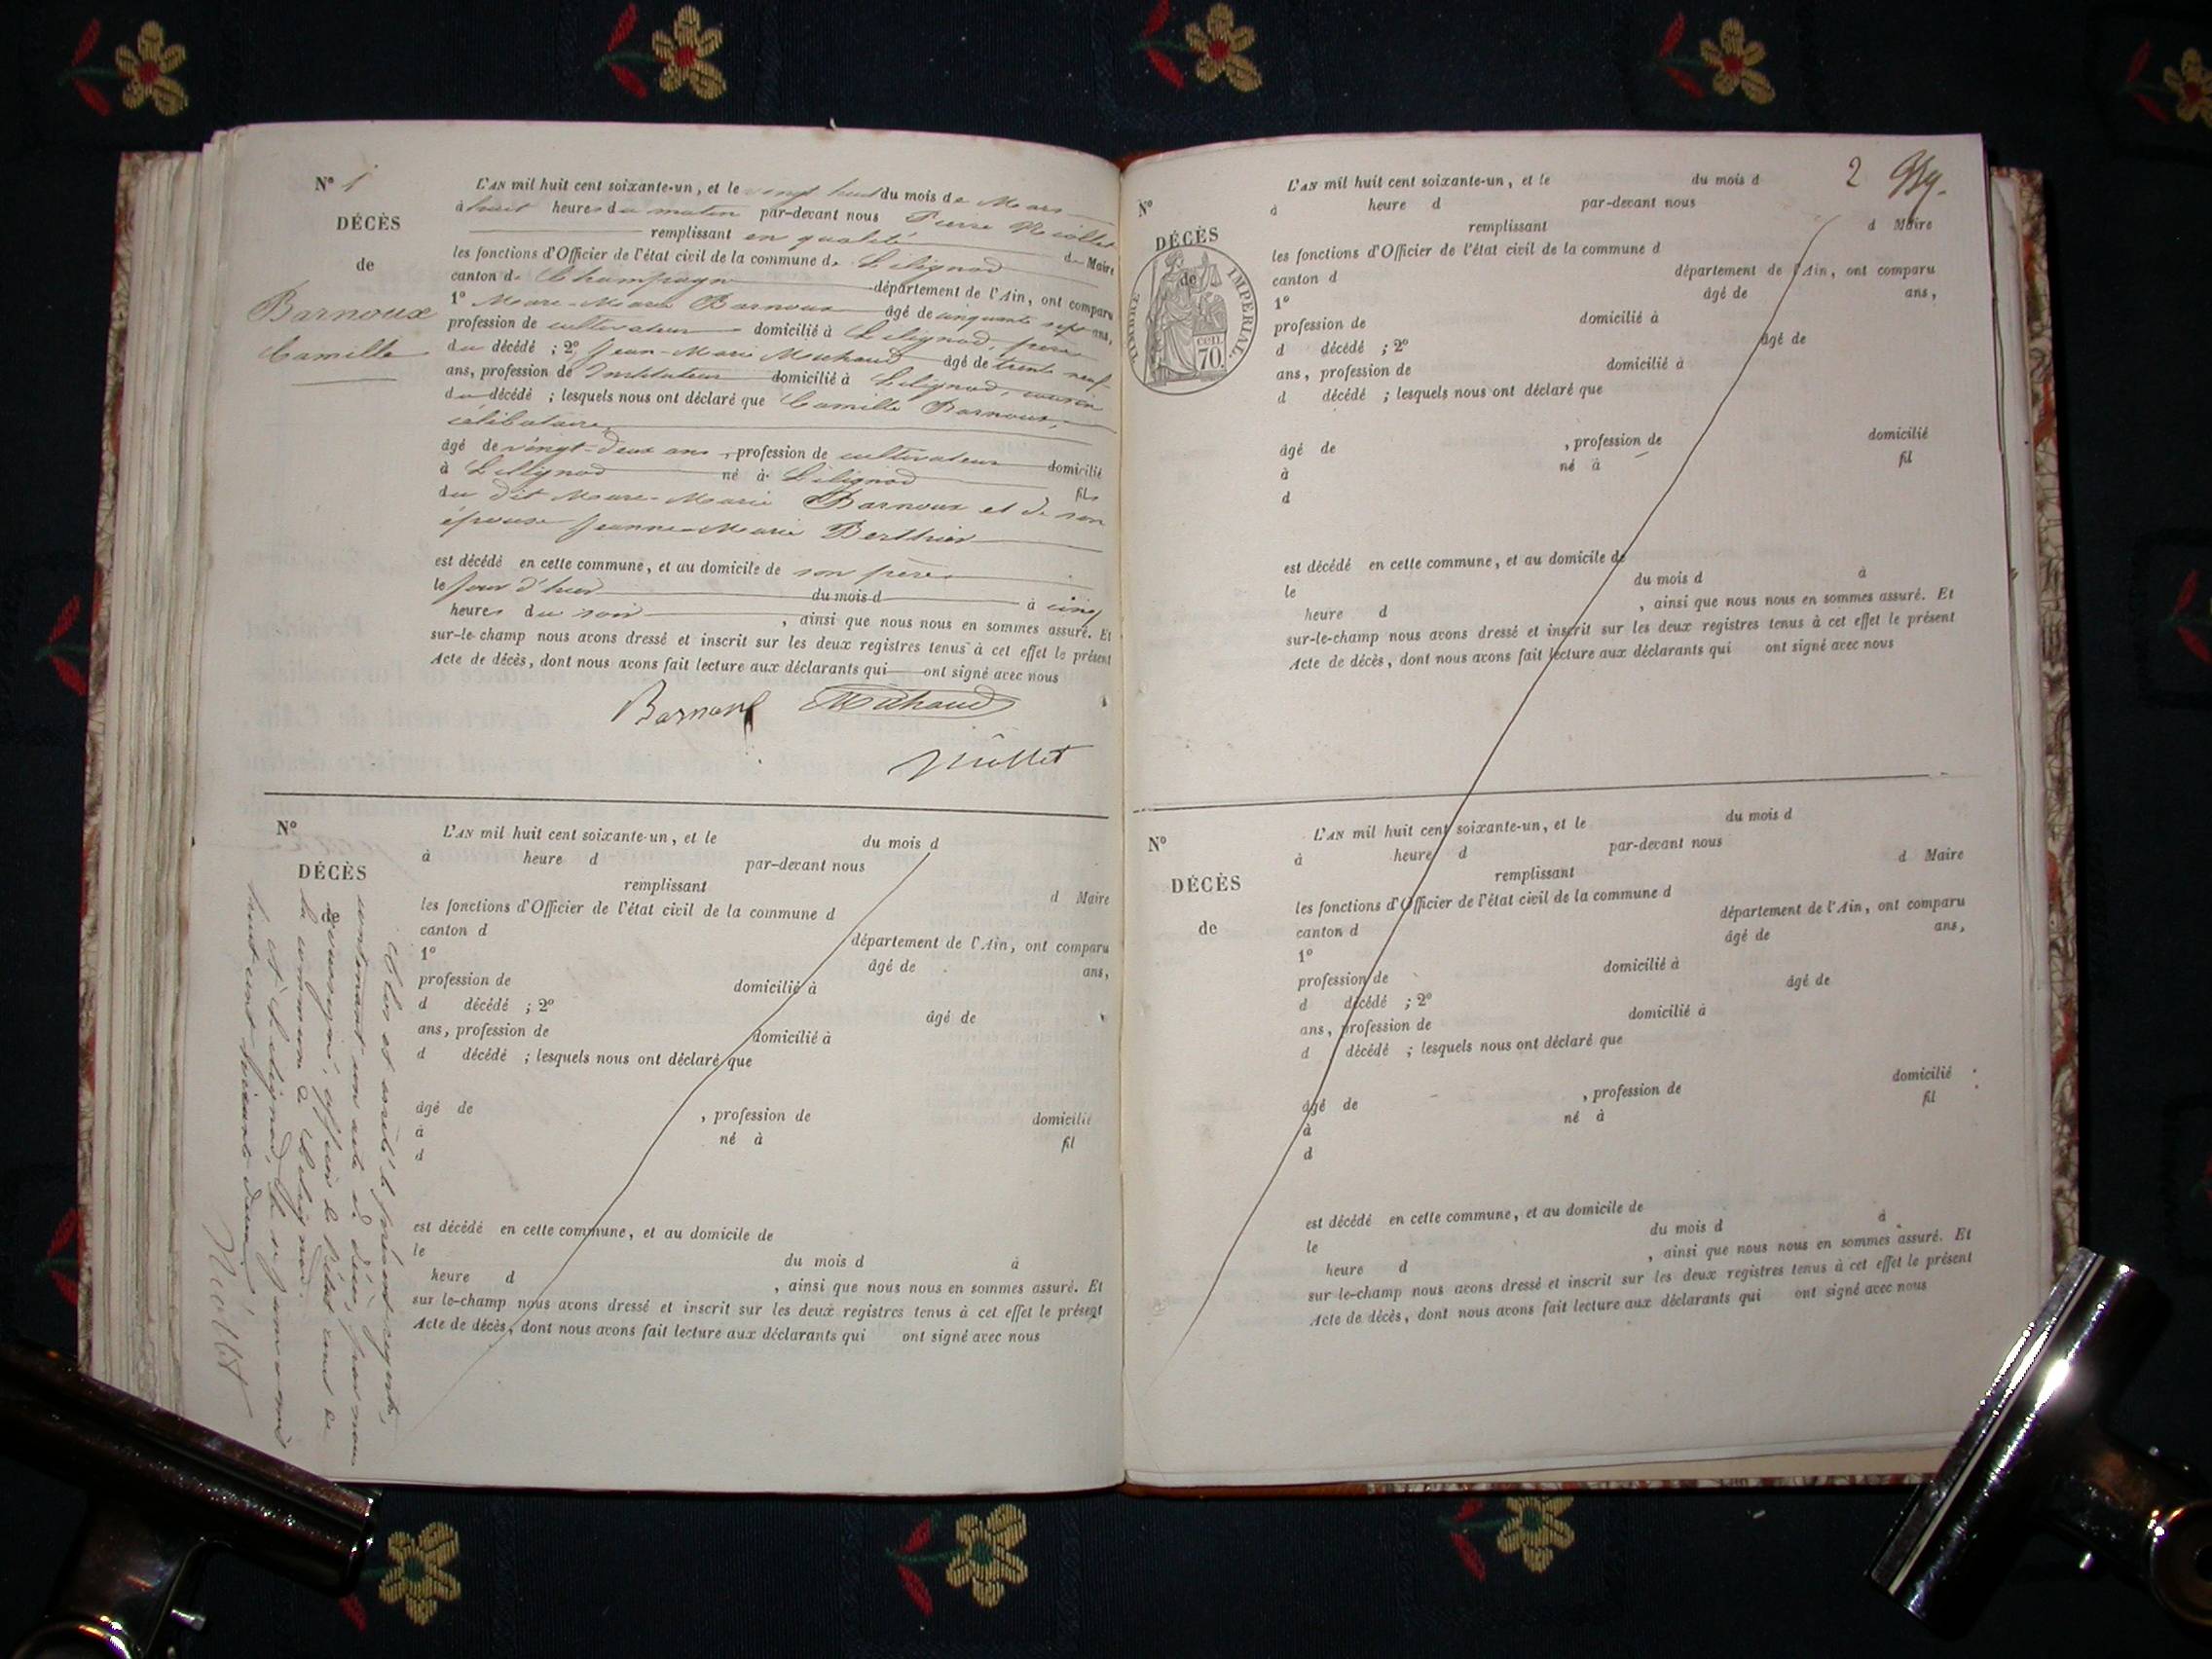 N° 1
DÉCÈS
de
Barnoux
Camille
L'AN mil huit cent soixante-un, et le vingt huit du mois de Mars
à huit heures du matin par-devant nous Pierre Niollet
remplissant en qualité de Maire
les fonctions d'Officier de l'état civil de la commune de Lilignod
canton de Champagne département de l'Ain, ont comparu
1° Marie Barnoux âgé de cinquante sept ans,
profession de cultivateur domicilié à Lilignod, père
du décédé ; 2° Jean-Marie Michaud âgé de trente neuf
ans, profession de Instituteur domicilié à Lilignod, cousin
du décédé ; lesquels nous ont déclaré que Camille Barnoux,
célibataire,
âgé de vingt-deux ans, profession de cultivateur domicilié
à Lilignod né à Lilignod fils
du dit Marie Barnoux et de son
épouse Jeanne-Marie Berthier
est décédé en cette commune, et au domicile de son père
le jour d'hier du mois d à cinq
heures du soir, ainsi que nous nous en sommes assuré. Et
sur-le-champ nous avons dressé et inscrit sur les deux registres tenus à cet effet le présent
Acte de décès, dont nous avons fait lecture aux déclarants qui ont signé avec nous
Barnoux Michaud
Niollet
N°
DÉCÈS
de
L'AN mil huit cent soixante-un, et le du mois d
à heure d par-devant nous
remplissant d Maire
les fonctions d'Officier de l'état civil de la commune d
canton d département de l'Ain, ont comparu
1° âgé de ans,
profession de domicilié à
d décédé ; 2° âgé de
ans, profession de domicilié à
d décédé ; lesquels nous ont déclaré que
âgé de , profession de domicilié
à né à fil
d
est décédé en cette commune, et au domicile de
le du mois d à
heure d , ainsi que nous nous en sommes assuré. Et
sur le-champ nous avons dressé et inscrit sur les deux registres tenus à cet effet le présent
Acte de décès, dont nous avons fait lecture aux déclarants qui ont signé avec nous
Clos et arrêté le présent registre,
contenant un acte de décès, par nous
soussigné, officier de l'état civil de
la commune de Lilignod.
à Lilignod, le
huit cent soixante deux.
Niollet
2
N°
DÉCÈS
de
TIMBRE IMPÉRIAL
cen
70.
L'AN mil huit cent soixante-un, et le du mois d
à heure d par-devant nous
remplissant d Maire
les fonctions d'Officier de l'état civil de la commune d
canton d département de l'Ain, ont comparu
1° âgé de ans,
profession de domicilié à
d décédé ; 2° âgé de
ans, profession de domicilié à
d décédé ; lesquels nous ont déclaré que
âgé de , profession de domicilié
à né à fil
d
est décédé en cette commune, et au domicile de
le du mois d à
heure d , ainsi que nous nous en sommes assuré. Et
sur-le-champ nous avons dressé et inscrit sur les deux registres tenus à cet effet le présent
Acte de décès, dont nous avons fait lecture aux déclarants qui ont signé avec nous
N°
DÉCÈS
de
L'AN mil huit cent soixante-un, et le du mois d
à heure d par-devant nous
remplissant d Maire
les fonctions d'Officier de l'état civil de la commune d
canton d département de l'Ain, ont comparu
1° âgé de ans,
profession de domicilié à
d décédé ; 2° âgé de
ans, profession de domicilié à
d décédé ; lesquels nous ont déclaré que
âgé de , profession de domicilié
à né à fil
d
est décédé en cette commune, et au domicile de
le du mois d à
heure d , ainsi que nous nous en sommes assuré. Et
sur-le-champ nous avons dressé et inscrit sur les deux registres tenus à cet effet le présent
Acte de décès, dont nous avons fait lecture aux déclarants qui ont signé avec nous